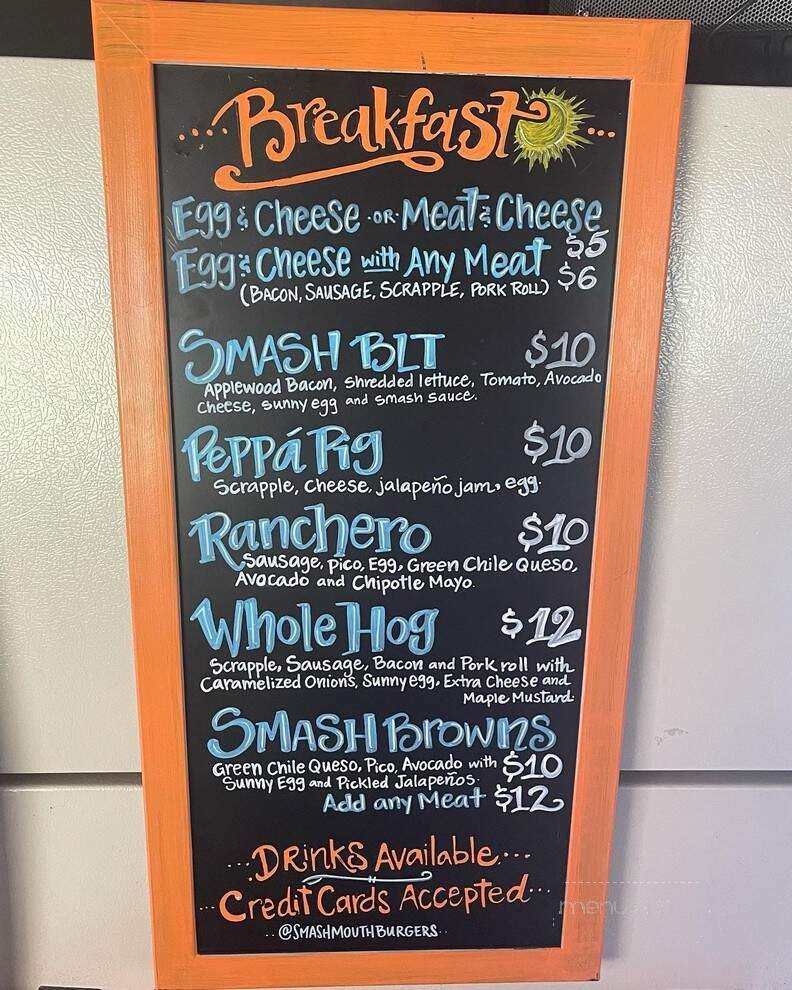 ...Breakfast...
Egg & Cheese -or- Meat & Cheese
$5
Egg & Cheese with Any Meat $6
(Bacon, Sausage, Scrapple, Pork Roll)
Smash BLT $10
Applewood Bacon, Shredded lettuce, Tomato, Avocado
Cheese, sunny egg and smash sauce.
Peppá Pig $10
Scrapple, Cheese, jalapeño jam, egg.
Ranchero $10
Sausage, Pico, Egg, Green Chile Queso,
Avocado and Chipotle Mayo.
Whole Hog $12
Scrapple, Sausage, Bacon and Pork roll with
Caramelized Onions, Sunny egg, Extra Cheese and
Maple Mustard.
Smash Browns
Green Chile Queso, Pico, Avocado with $10
Sunny Egg and Pickled Jalapeños.
Add any Meat $12
...Drinks Available...
...Credit Cards Accepted...
..@SMASHMOUTHBURGERS..
menu